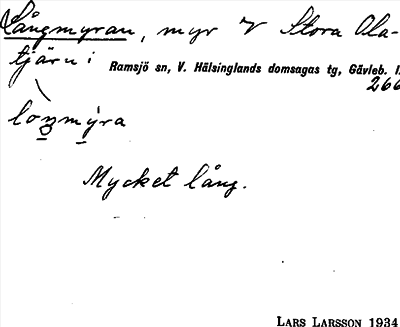 Långmyran, myr V Stora Ala-
tjärn i Ramsjö sn, V. Hälsinglands domsagas tg, Gävleb. l.
266
lòŋmýra
Mycket lång.
LARS LARSSON 1934